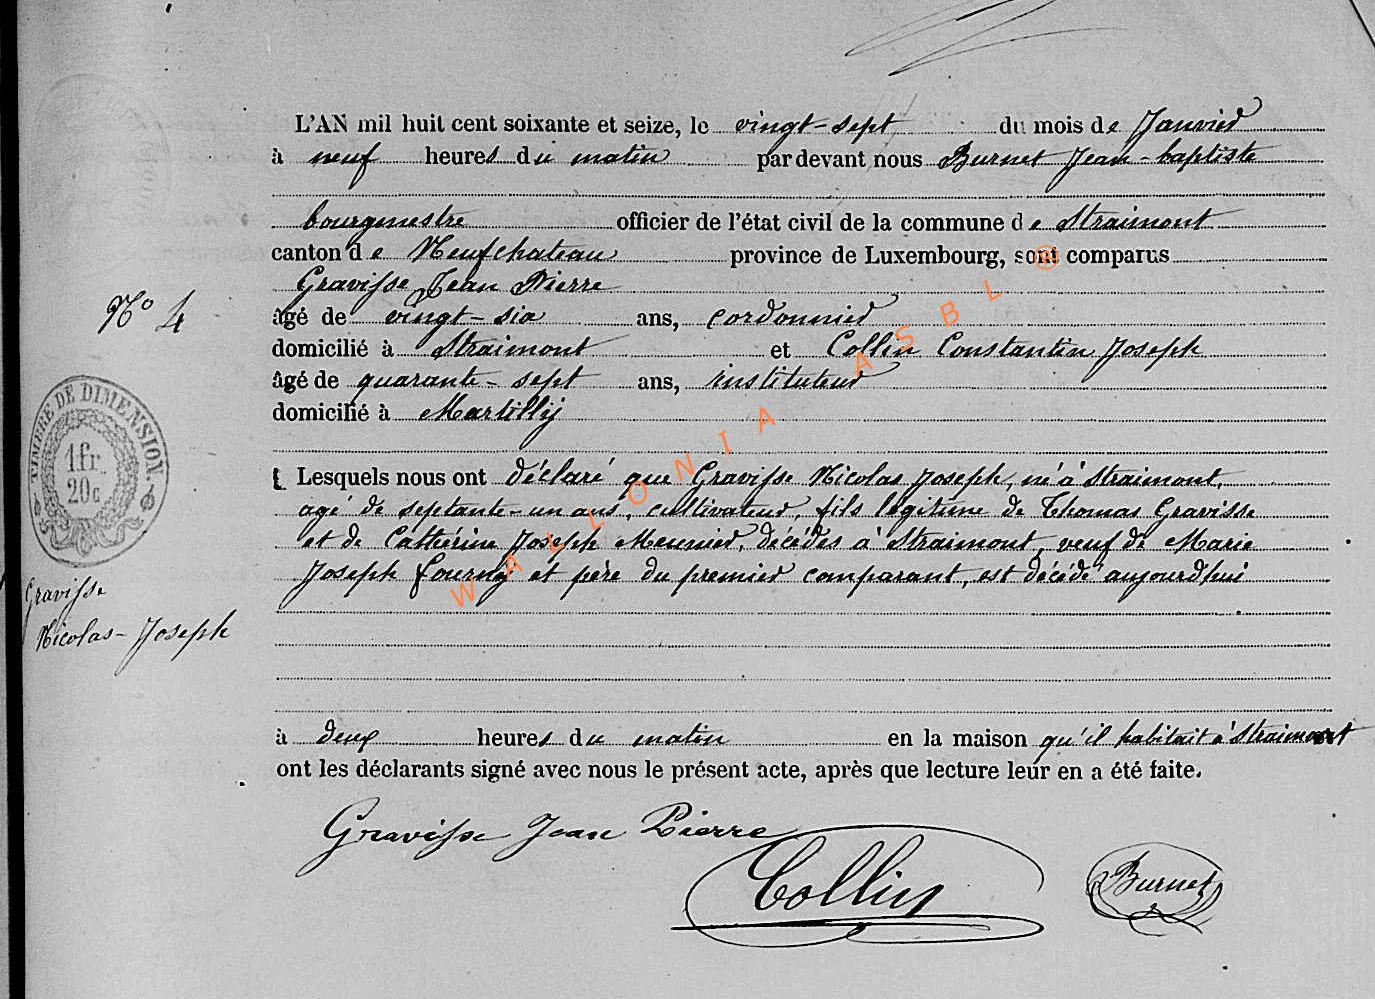 L'AN mil huit cent soixante et seize, le vingt-sept du mois de Janvier
à neuf heures du matin par devant nous Burnet Jean-baptiste
bourgmestre officier de l'état civil de la commune de Straimont
canton de Neufchateau province de Luxembourg, sont comparus
Gravisse Jean Pierre
âgé de vingt-six ans, cordonnier
N° 4
domicilié à Straimont et Collin Constantin Joseph
âgé de quarante-sept ans, instituteur
domicilié à Martilly
TIMBRE DE DIMENSION.
1 fr.
20 c
Lesquels nous ont déclaré que Gravisse Nicolas Joseph, né à Straimont,
agé de septante-un ans, cultivateur, fils légitime de Thomas Gravisse
et de Catherine Joseph Meunier, décédés à Straimont, veuf de Marie
Joseph Fourny et père du premier comparant, est décédé aujourd'hui
Gravisse
Nicolas-Joseph
à deux heures du matin en la maison qu'il habitait à Straimont
ont les déclarants signé avec nous le présent acte, après que lecture leur en a été faite.
Gravisse Jean Pierre
Collin
Burnet
WALLONIA ASBL ®